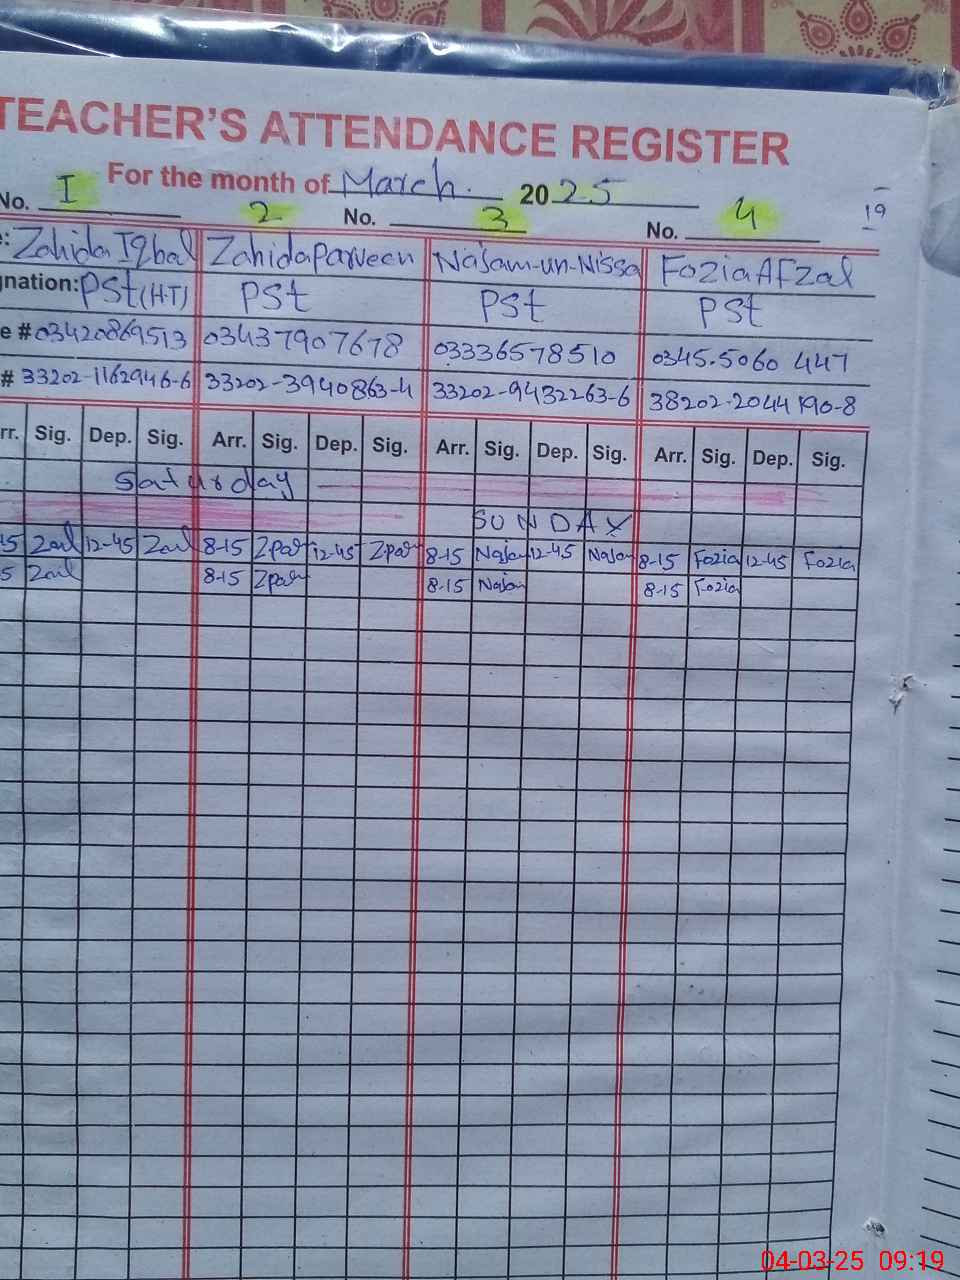 TEACHER'S ATTENDANCE REGISTER
For the month of March. 2025
No. I 2 No. 3 No. 4 19
e: Zahida Iqbal Zahida Parveen Najam-un-Nissa Fozia Afzal
gnation: PSt (H.T) PSt PSt PSt
e # 03420869513 03437907678 03336578510 0345.5060 447
# 33202-1162946-6 33202-3940863-4 33202-9432263-6 38202-2044190-8
rr. Sig. Dep. Sig. Arr. Sig. Dep. Sig. Arr. Sig. Dep. Sig. Arr. Sig. Dep. Sig.
Saturday
SUNDAY
15 12-45 8-15 Zpar 12-45 Zpar 8-15 Najam 12-45 Najam 8-15 Fozia 12-45 Fozia
5 8-15 Zpar 8-15 Najam 8-15 Fozia
04-03-25 09:19